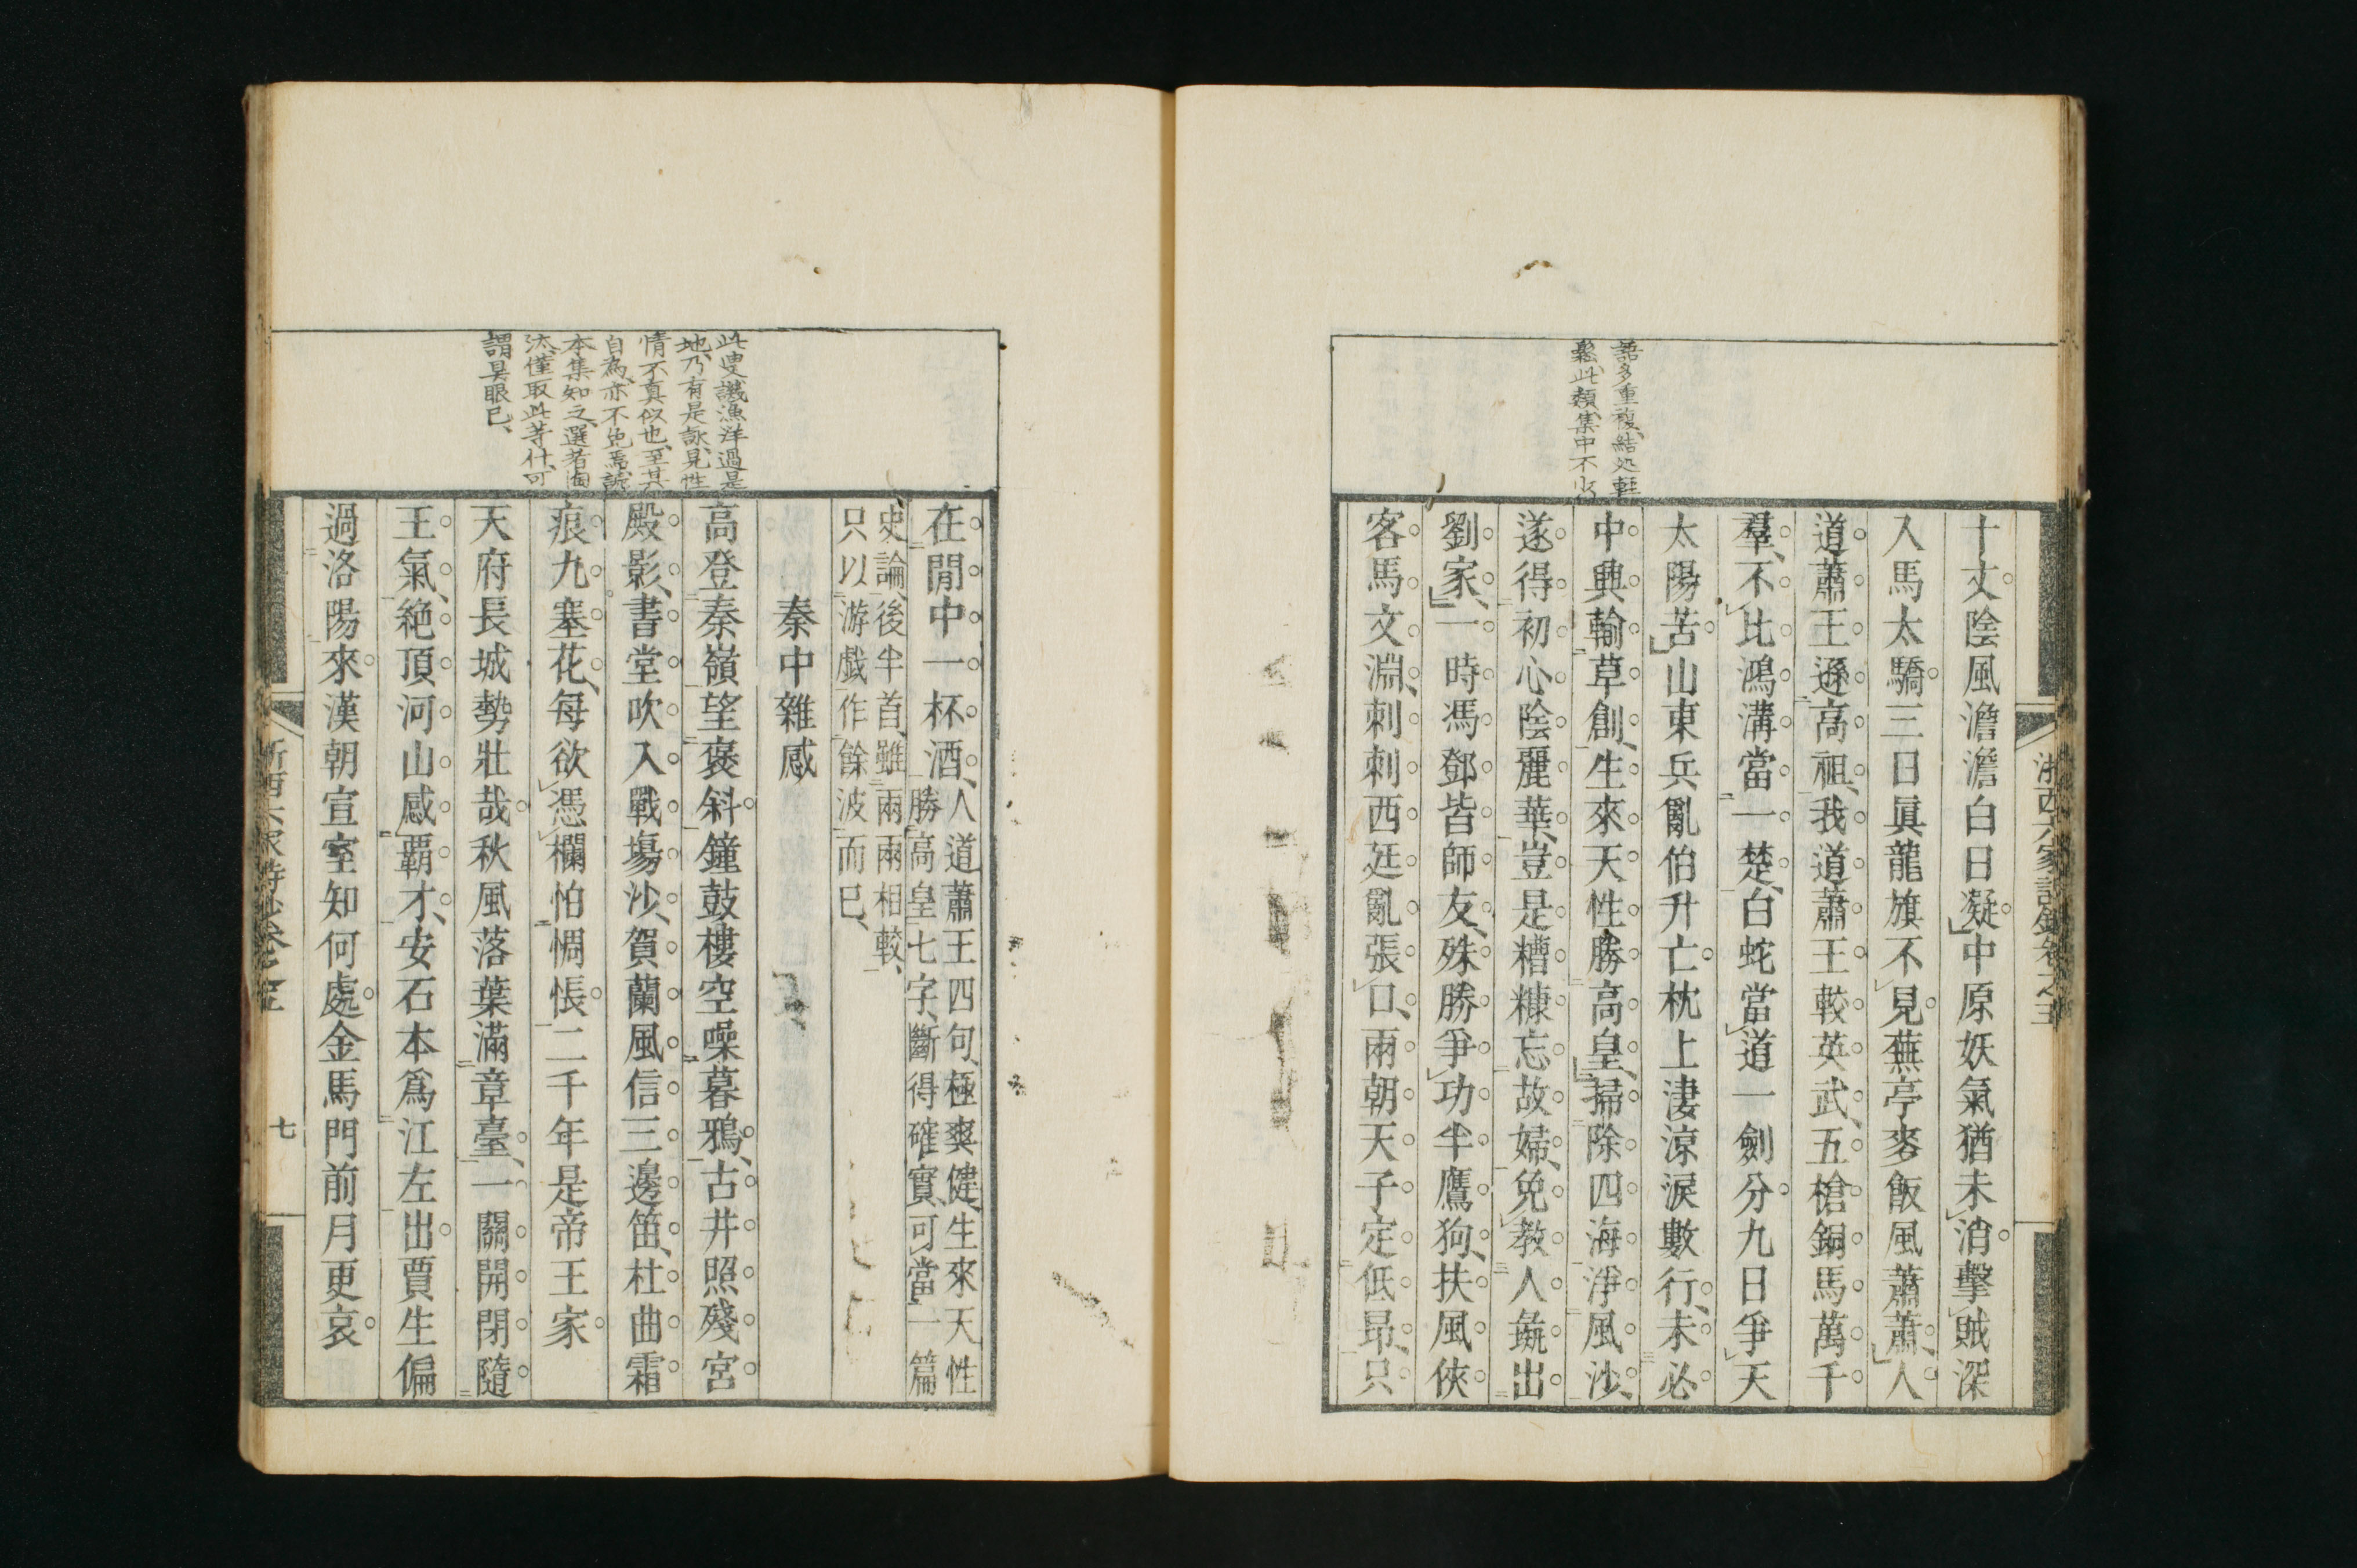 浙西六家詩鈔卷之五
語多重複、結処輕
鬆、此類集中不少
十丈陰風澹澹白日凝中原妖氣猶未消擊賊深
入馬太驕三日眞龍旗不見蕪亭麥飯風蕭蕭、人
道蕭王遜高祖、我道蕭王較英武、五槍銅馬萬千
羣、不比鴻溝當一楚、白蛇當道一劍分九日爭天
太陽苦山東兵亂伯升亡枕上淒涼淚數行、未必
中興輸草創、生來天性勝高皇、掃除四海淨風沙、
遂得初心陰麗華、豈是糟糠忘故婦、免教人䖍出
劉家、一時馮鄧皆師友、殊勝爭功半鷹狗、扶風俠
客馬文淵、刺刺西廷亂張口、兩朝天子定低昂、只
此叟譏漁洋過是
地、乃有是詠、見性
情不真似也、至其
自為、亦不免焉、
本集知之、選者
汰、僅取此等什、可
謂具眼已、
在閒中一杯酒、
人道蕭王四句、極爽健、生來天性
勝高皇七字、斷得確實、可當一篇
史論、後半首、雖兩兩相較、
只以游戲作餘波而已、
秦中雜感
高登秦嶺望褒斜鐘鼓樓空噪暮鴉、古井照殘宮
殿影、書堂吹入戰場沙、賀蘭風信三邊笛、杜曲霜
痕九塞花、每欲憑欄怕惆悵二千年是帝王家
天府長城勢壯哉秋風落葉滿章臺、一關開閉隨
王氣、絕頂河山感霸才、安石本爲江左出賈生偏
過洛陽來漢朝宣室知何處金馬門前月更哀
浙西六家詩鈔卷之五
七